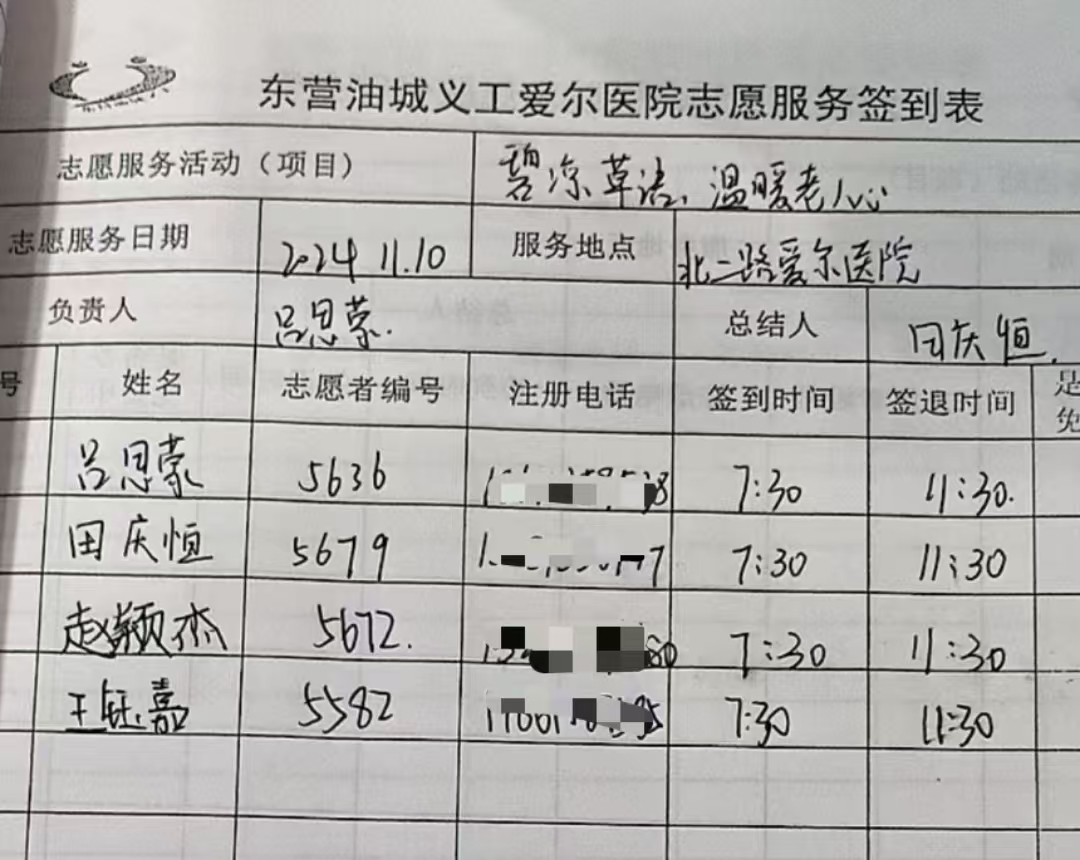 东营油城义工爱尔医院志愿服务签到表
志愿服务活动(项目) 碧凉草语、温暖老人心
志愿服务日期 2024 11.10 服务地点 北二路爱尔医院
负责人 吕思蒙. 总结人 田庆恒.
号 姓名 志愿者编号 注册电话 签到时间 签退时间 是
免
吕思蒙 5636 8 7:30 11:30.
田庆恒 5679 7 7:30 11:30
赵颖杰 5672. 80 7:30 11:30
王钰嘉 5582 7:30 11:30